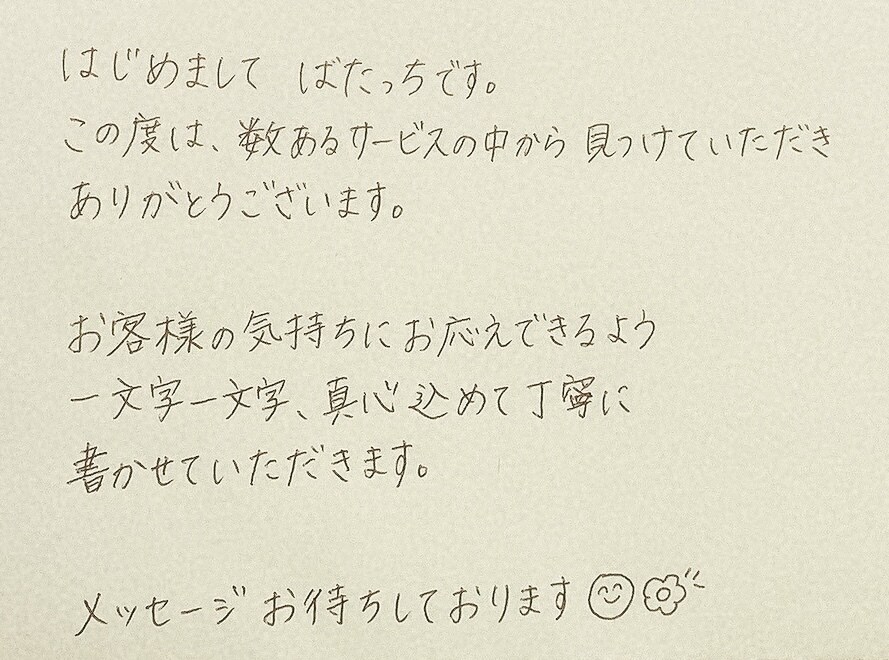 はじめまして ばたっちです。
この度は、数あるサービスの中から 見つけていただき
ありがとうございます。
お客様の気持ちにお応えできるよう
一文字一文字、真心込めて丁寧に
書かせていただきます。
メッセージお待ちしております